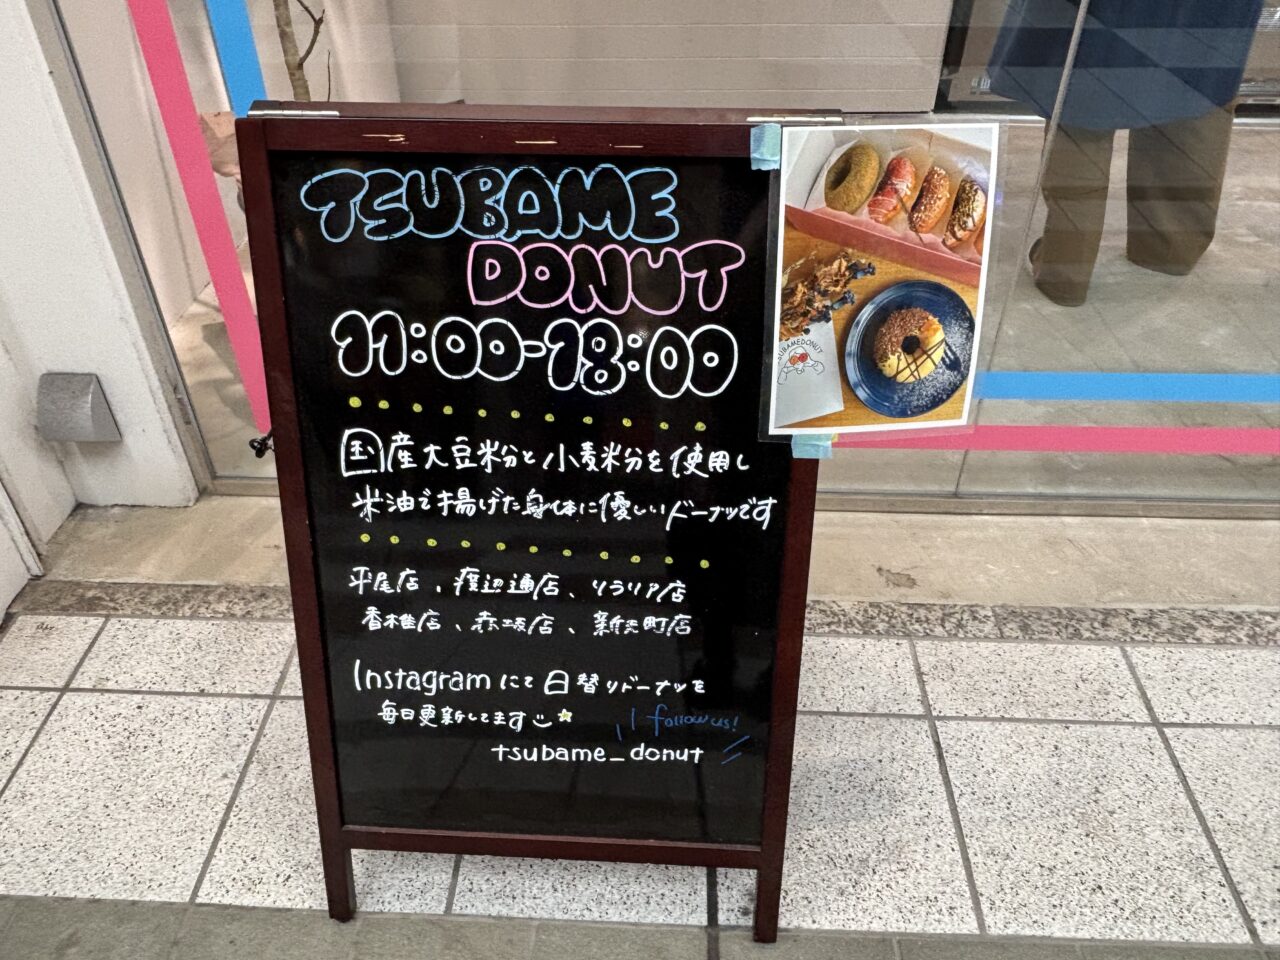 TSUBAME
DONUT
11:00-18:00
国産大豆粉と小麦粉を使用し
米油で揚げた身体に優しいドーナツです
平尾店、渡辺通店、リラリア店
香椎店、赤坂店、新天町店
Instagramにて日替りドーナツを
毎日更新してます
follow us!
tsubame_donut
TSUBAMEDONUT